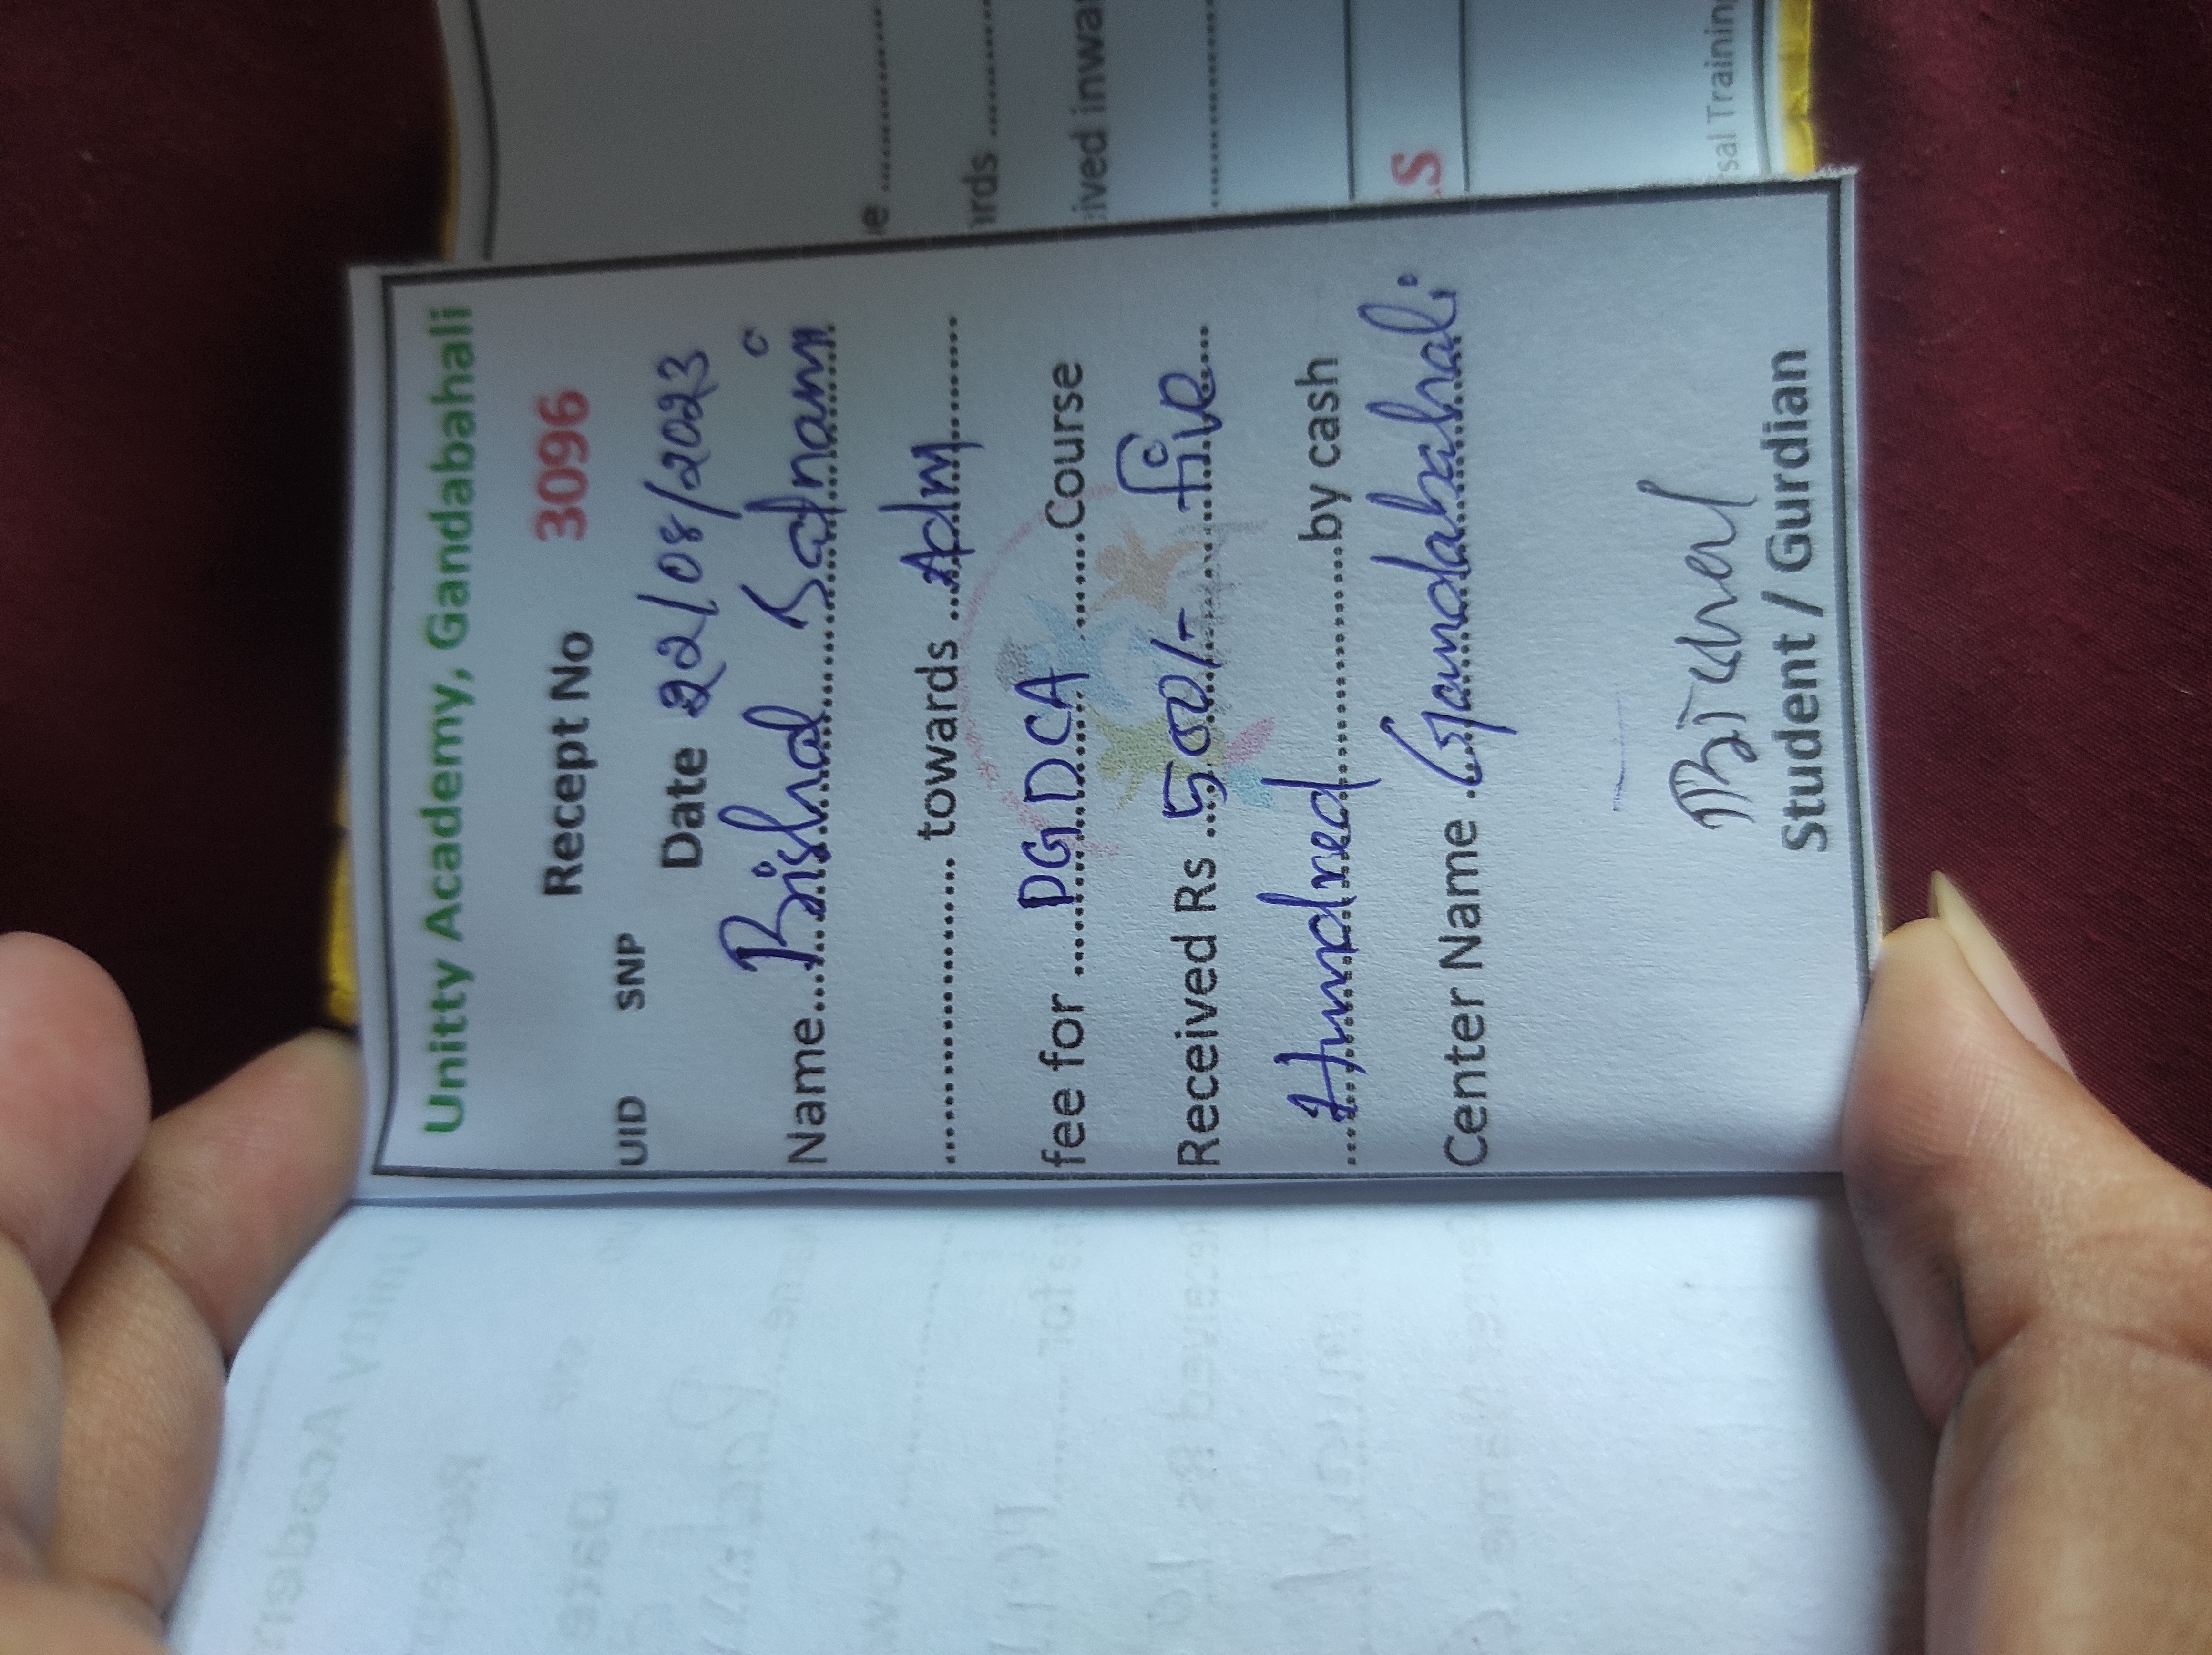 Unitty Academy, Gandabahali
Recept No 3096
UID SNP
Date 22/08/2023
Name....Bishal Satnami
.................... towards ...Adm..........
fee for ........PGDCA........Course
Received Rs ...500/-......five.....
....Hundred....................by cash
Center Name ..Gandabahali
Bishal
Student / Gurdian
e ............
rds ..........
ived inwa
............
S
rsal Training